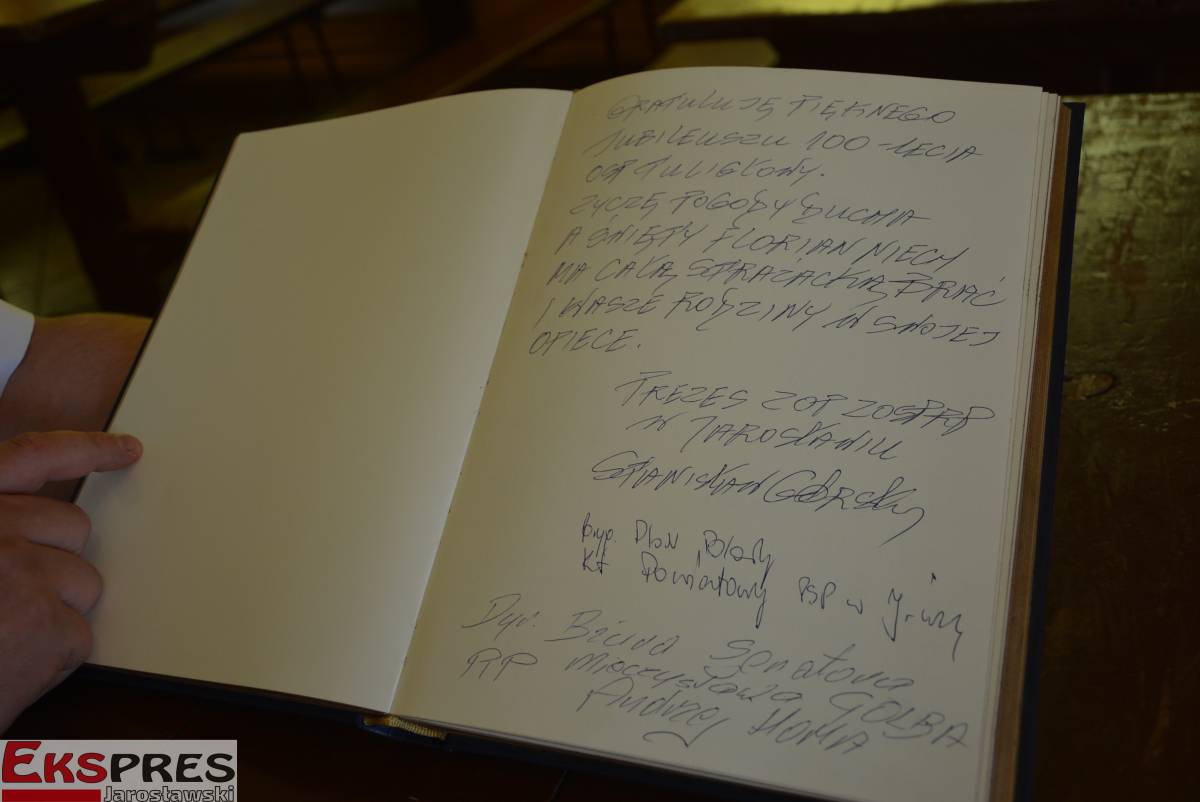 GRATULUJĘ PIĘKNEGO
JUBILEUSZU 100-LECIA
OSP TULIGŁOWY.
ŻYCZĘ POGODY DUCHA
A ŚWIĘTY FLORIAN NIECH
MA CAŁĄ STRAŻACKĄ BRAĆ
I WASZE RODZINY W SWOJEJ
OPIECE.
PREZES ZOP ZOSPRP
W JAROSŁAWIU
STANISŁAW GÓRSKI
bryg. Piotr Blady
Kt Powiatowy PSP w J-wiu
Dyr. Biura Senatora
RP Mieczysława GOLBA
Andrzej HOMA
EKSPRES
Jarosławski